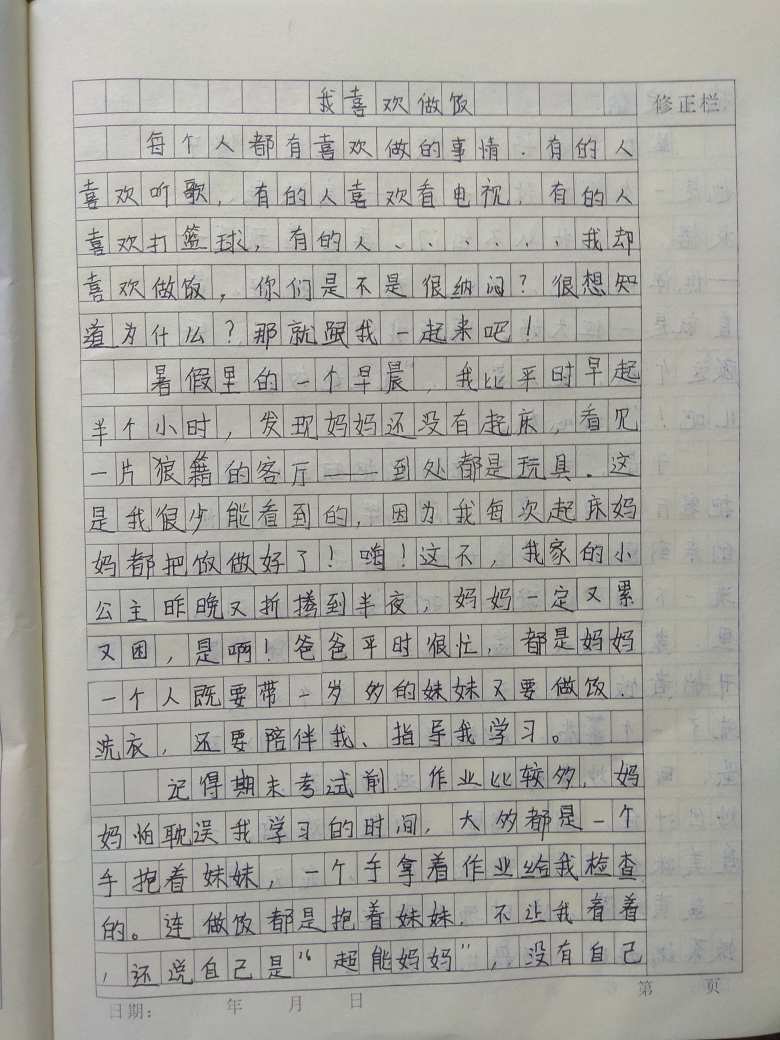 我喜欢做饭
修正栏
每个人都有喜欢做的事情.有的人
喜欢听歌,有的人喜欢看电视,有的人
喜欢打篮球,有的人、、、、、、我却
喜欢做饭,你们是不是很纳闷?很想知
道为什么?那就跟我一起来吧!
暑假里的一个早晨,我比平时早起
半个小时,发现妈妈还没有起床,看见
一片狼籍的客厅——到处都是玩具.这
是我很少能看到的,因为我每次起床妈
妈都把饭做好了!嗨!这不,我家的小
公主昨晚又折腾到半夜,妈妈一定又累
又困,是啊!爸爸平时很忙,都是妈妈
一个人既要带一岁多的妹妹又要做饭.
洗衣,还要陪伴我、指导我学习。
记得期末考试前.作业比较多,妈
妈怕耽误我学习的时间,大多都是一个
手抱着妹妹,一个手拿着作业给我检查
的。连做饭都是抱着妹妹.不让我看着
,还说自己是“超能妈妈”,没有自己
日期: 年 月 日
第 页